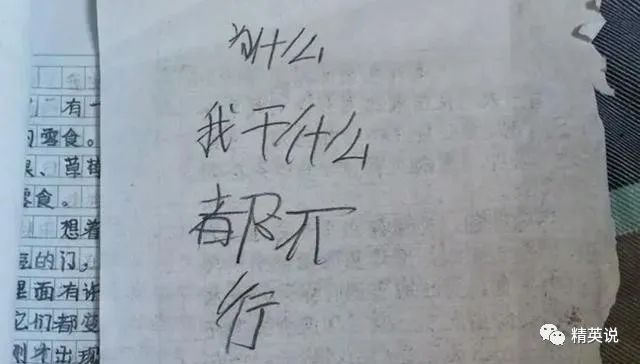 为什么
我干什么
都不
行
有一
零食。
草莓
零食。
想着
的门,
里面有许
它们都变
刚才出现
精英说